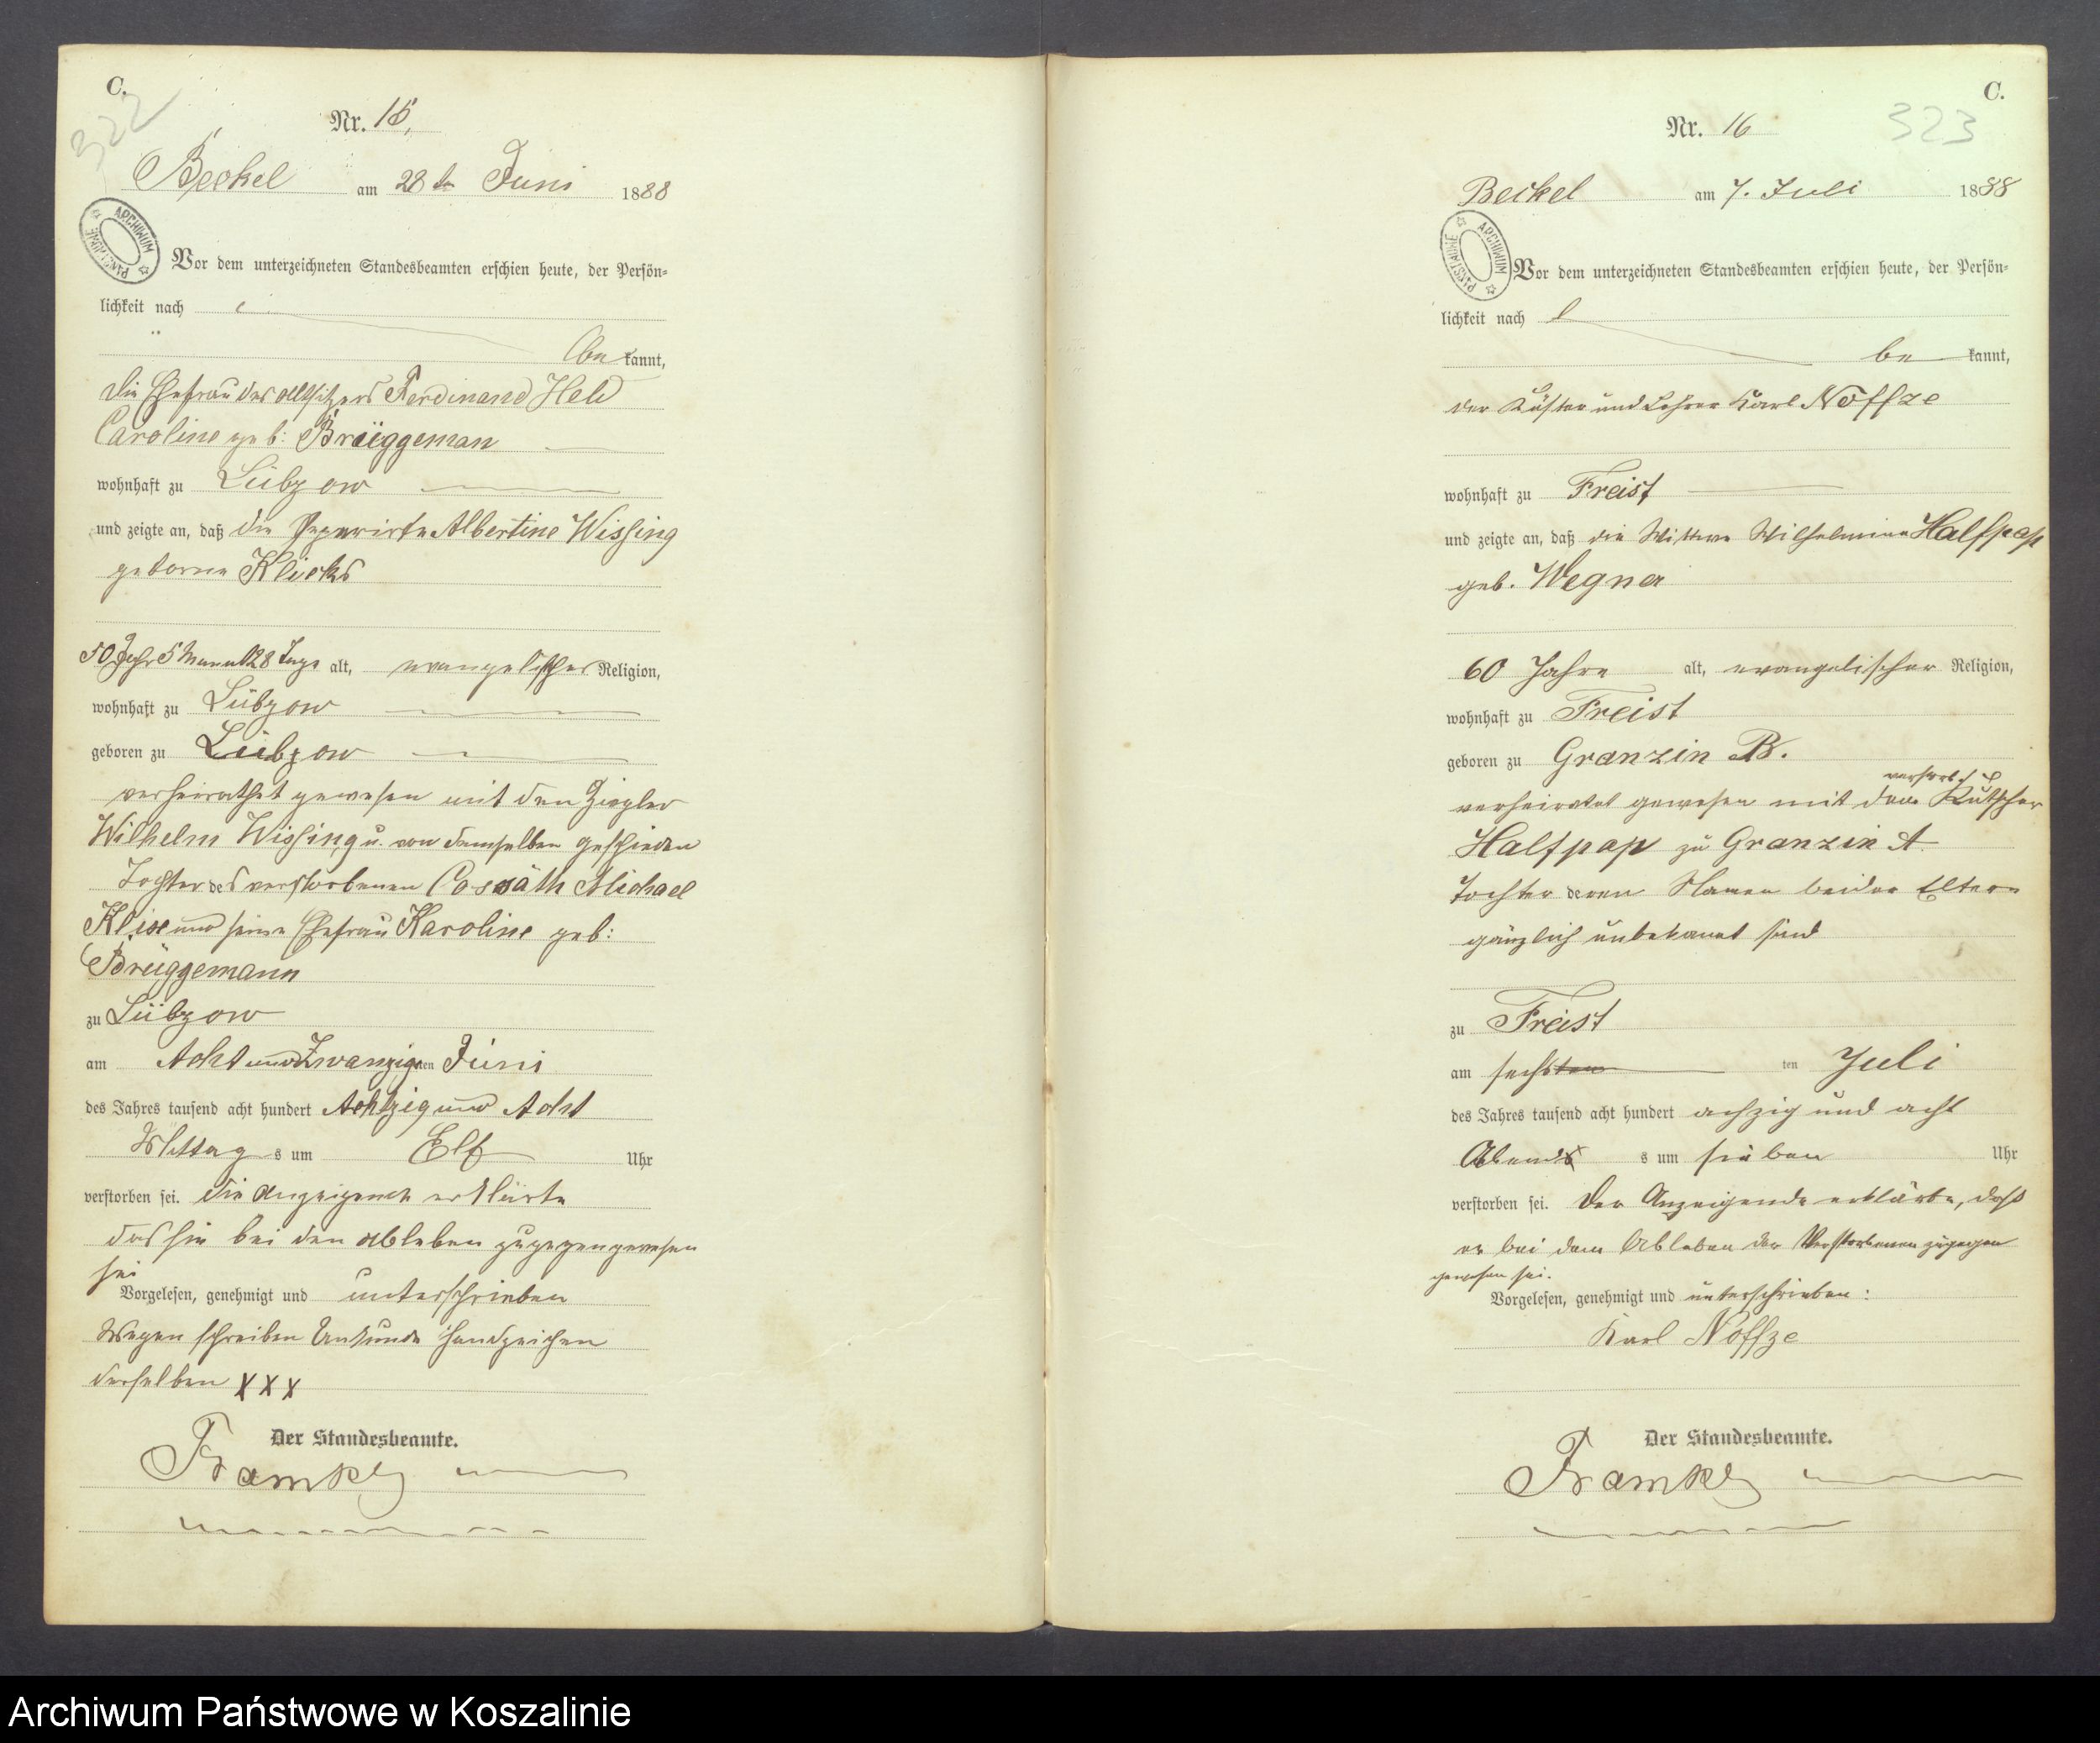 C.
322
Nr. 15,
Beckel am 28 ten Juni 1888
ARCHIWUM PAŃSTWOWE
Vor dem unterzeichneten Standesbeamten erschien heute, der Persön-
lichkeit nach
be kannt,
die Ehefrau des Altsitzers Ferdinand Held
Caroline geb: Brüggeman
wohnhaft zu Lübzow
und zeigte an, daß die Separirte Albertine Wissing
geborne Klicks
50 Jahr 5 Monat 28 Tage alt, evangelischer Religion,
wohnhaft zu Lübzow
geboren zu Lübzow
verheirathet gewesen mit den Ziegler
Wilhelm Wissing u. von demselben geschieden
Tochter des verstorbenen Cossäth Michael
und seine Ehefrau Karoline geb:
Brüggemann
zu Lübzow
am Acht und Zwanzigten Juni
des Jahres tausend acht hundert Achtzig und Acht
Mittag s um Elf Uhr
verstorben sei. die Anzeigende erklärte
das sie bei den Ableben zugegen gewesen
sei
Vorgelesen, genehmigt und unterschrieben
Wegen schreiben Unkunde Handzeichen
derselben XXX
Der Standesbeamte.
C.
323
Nr. 16
Beckel am 7. Juli 1888
ARCHIWUM PAŃSTWOWE
Vor dem unterzeichneten Standesbeamten erschien heute, der Persön-
lichkeit nach
be kannt,
der Küster und Lehrer Karl Noffze
wohnhaft zu Freist
und zeigte an, daß die Wittwe Wilhelmine Halfpap
geb. Wegner
60 Jahre alt, evangelischer Religion,
wohnhaft zu Freist
geboren zu Granzin B.
verheiratet gewesen mit dem verstorb. Kutscher
Halfpap zu Granzin A
Tochter deren Namen beider Eltern
gänzlich unbekannt sind
zu Freist
am sechsten ten Juli
des Jahres tausend acht hundert achzig und acht
Abends s um sieben Uhr
verstorben sei. Der Anzeigende erklärte, daß
er bei dem Ableben der Verstorbenen zugegen
gewesen sei.
Vorgelesen, genehmigt und unterschrieben:
Karl Noffze
Der Standesbeamte.
Archiwum Państwowe w Koszalinie